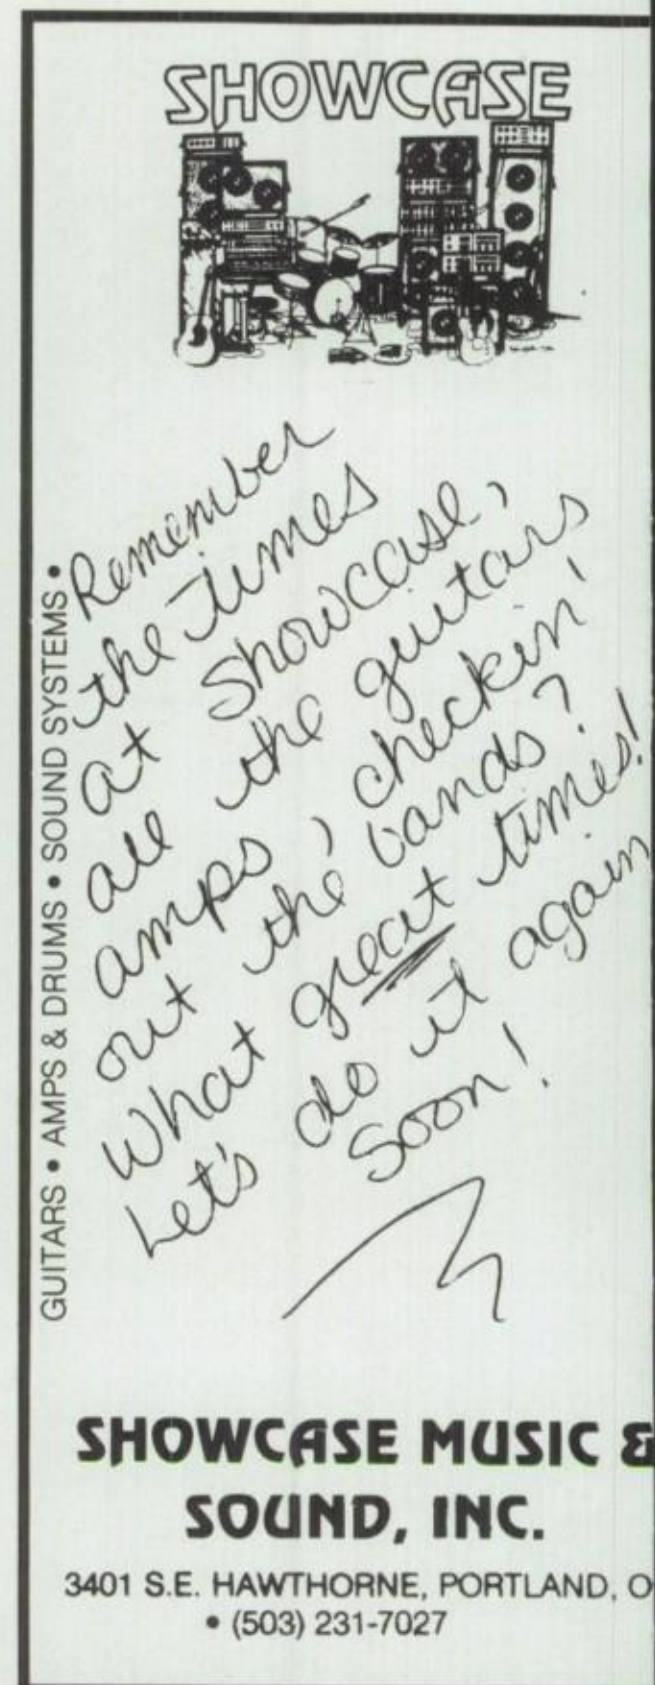 SHOWCASE
GUITARS • AMPS & DRUMS • SOUND SYSTEMS •
Remember
the times
at Showcase,
all the guitars
amps, checkin'
out the bands?
What great times!
Let's do it again
Soon!
SHOWCASE MUSIC &
SOUND, INC.
3401 S.E. HAWTHORNE, PORTLAND, O
• (503) 231-7027